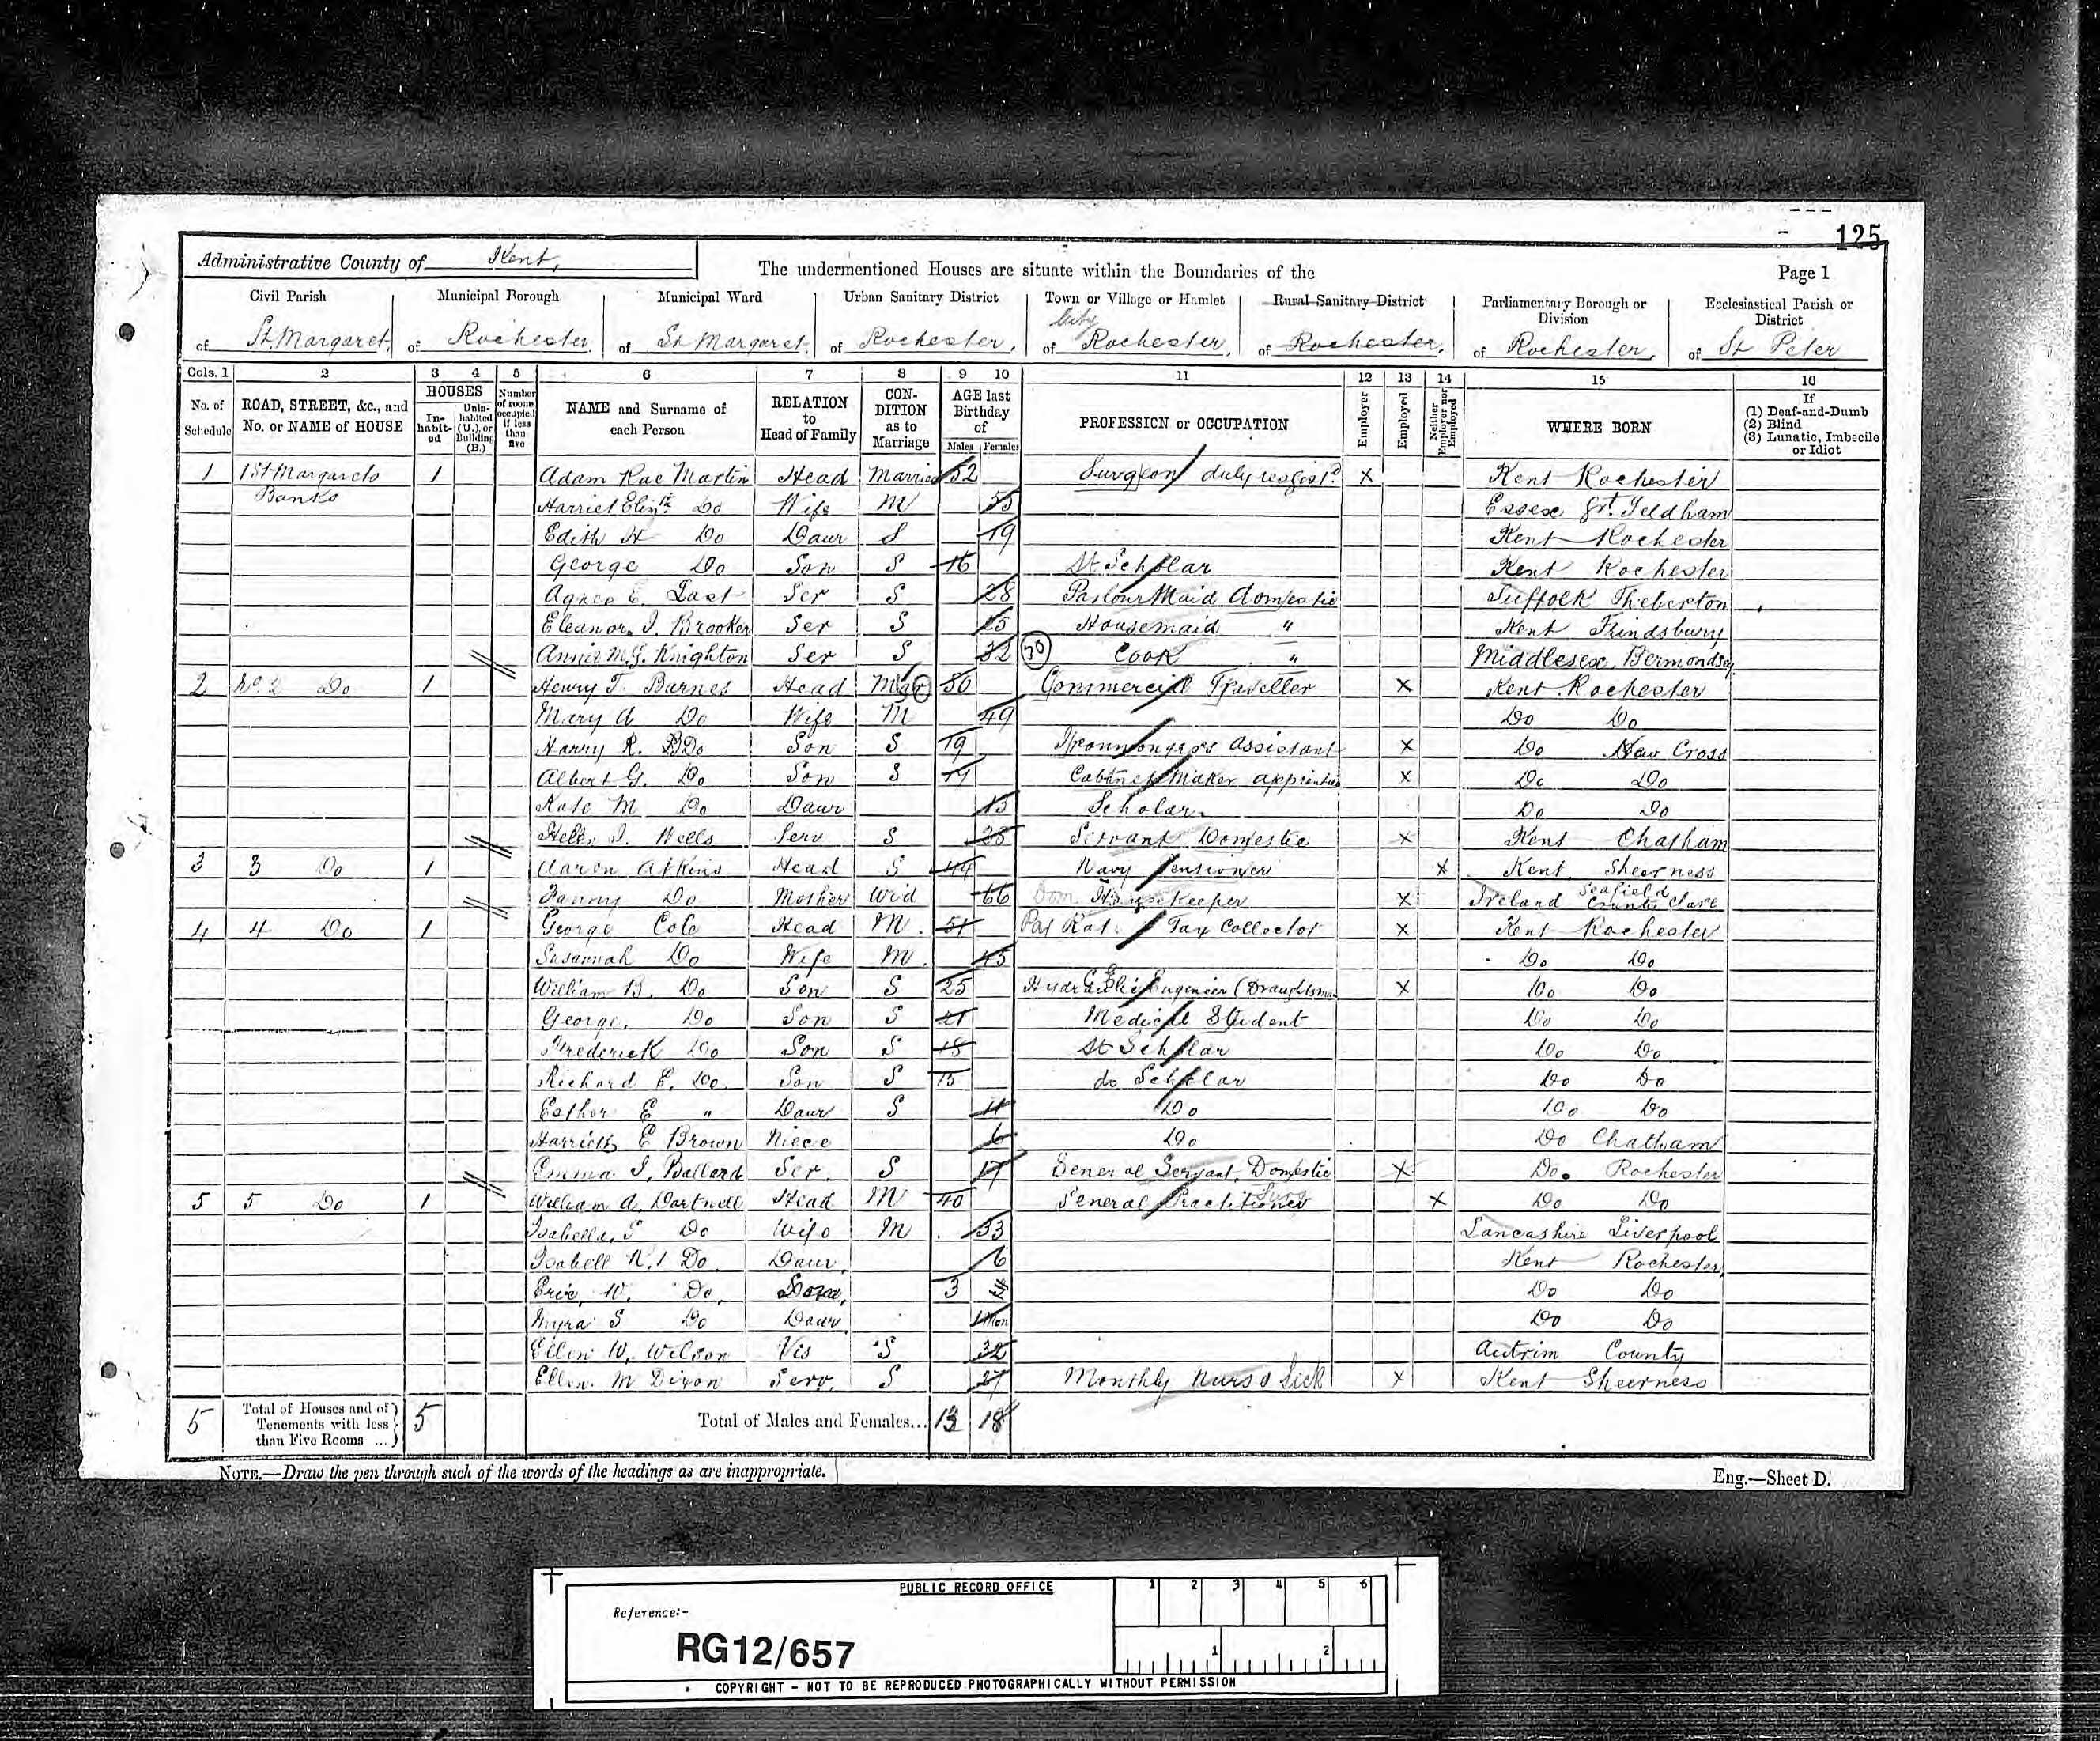 125
Administrative County of Kent,
The undermentioned Houses are situate within the Boundaries of the
Page 1
Civil Parish
Municipal Borough
Municipal Ward
Urban Sanitary District
Town or Village or Hamlet
Rural Sanitary District
Parliamentary Borough or Division
Ecclesiastical Parish or District
City
of St. Margaret, of Rochester, of St Margaret, of Rochester, of Rochester, of Rochester, of Rochester, of St Peter
Cols. 1 2 3 4 5 6 7 8 9 10 11 12 13 14 15 16
No. of Schedule
ROAD, STREET, &c., and No. or NAME of HOUSE
HOUSES
In-habit-ed
Unin-habited (U.), or Building (B.)
Number of rooms occupied if less than five
NAME and Surname of each Person
RELATION to Head of Family
CON-DITION as to Marriage
AGE last Birthday of
Males Females
PROFESSION or OCCUPATION
Employer
Employed
Neither Employer nor Employed
WHERE BORN
If
(1) Deaf-and-Dumb
(2) Blind
(3) Lunatic, Imbecile or Idiot
1 1 St Margarets 1 Adam Rae Martin Head Married 52 Surgeon duly regist.d X Kent Rochester
Banks
Harriet Eliz.th Do Wife M 55 Essex Gt. Yeldham
Edith H Do Daur S 19 Kent Rochester
George Do Son S 16 St Scholar Kent Rochester
Agnes E. Last Ser S 28 Parlour Maid Domestic Suffolk Theberton
Eleanor J. Brooker Ser S 15 Housemaid " Kent Frindsbury
Annie M.G. Knighton Ser S 32 30 Cook " Middlesex Bermondsey
2 No 2 Do 1 Henry T. Barnes Head Mar 50 Commercial Traveller X Kent Rochester
Mary A Do Wife M 49 Do Do
Harry R. B Do Son S 19 Ironmongers Assistant X Do New Cross
Albert G. Do Son S 17 Cabinet Maker apprentice X Do Do
Kate M Do Daur 13 Scholar Do Do
Helen J. Wells Serv S 38 Servant Domestic X Kent Chatham
3 3 Do 1 Aaron Atkins Head S 44 Navy Pensioner X Kent Sheerness
Fanny Do Mother Wid 66 Dom Housekeeper X Ireland Seafield County Clare
4 4 Do 1 George Cole Head M. 51 Rate Tax Collector X Kent Rochester
Susannah Do Wife M. 45 Do Do
William B. Do Son S 25 Hydraulic Engineer (Draughtsman X Do Do
George. Do Son S 21 Medical Student Do Do
Frederick Do Son S 18 St Scholar Do Do
Richard E. Do. Son S 15 do Scholar Do Do
Esther E " Daur S 11 Do Do Do
Harriett E Brown Niece 6 Do Do Chatham
Emma J. Ballard Ser. S 17 General Servant Domestic X Do. Rochester
5 5 Do 1 William A. Dartnell Head M 40 General Practitioner Surg X Do Do
Isabella S Do Wife M 33 Lancashire Liverpool
Isabell N. Do Daur. 6 Kent Rochester,
Eric W. Do. Son, 3 Do Do
Myra S Do Daur 1 Mon Do Do
Ellen W. Wilson Vis S 32 Antrim County
Ellen M Dixon Serv. S 27 Monthly Nurse Sick X Kent Sheerness
5 Total of Houses and of Tenements with less than Five Rooms ... 5 Total of Males and Females... 13 18
NOTE.—Draw the pen through such of the words of the headings as are inappropriate.
Eng.—Sheet D.
PUBLIC RECORD OFFICE
1 2 3 4 5 6
Reference:-
RG12/657
1 2
COPYRIGHT - NOT TO BE REPRODUCED PHOTOGRAPHICALLY WITHOUT PERMISSION